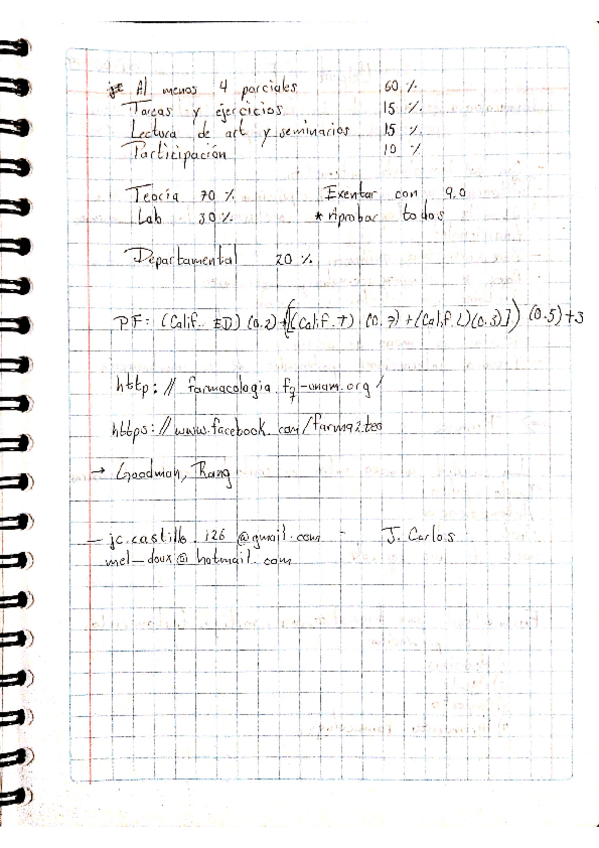 Al menos 4 parciales 60 %
Tareas y ejercicios 15 %
Lectura de art y seminarios 15 %
Participación 10 %
Teoría 70 % Exentar con 9.0
Lab 30 % * aprobar todos
Departamental 20 %
PF: (Calif. ED) (0.2) + [(Calif. T) (0.7) + (Calif. L) (0.3)]) (0.5) + 3
http: // farmacologia.fq-unam.org/
https: // www.facebook.com/farma2.teo
→ Goodman, Rang
— jc.castillo.126 @gmail.com - J. Carlos
mel-doux@hotmail.com